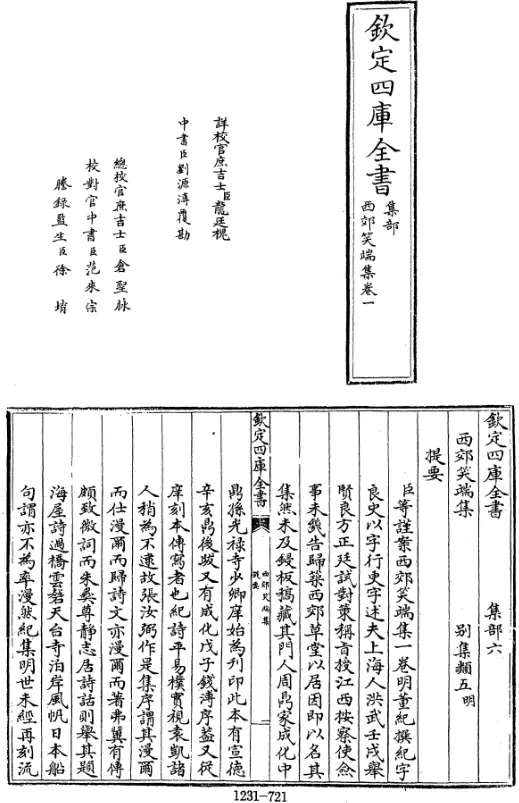 欽定四庫全書
集部
西郊笑端集卷一
詳校官庶吉士臣龍廷槐
中書臣劉源溥覆勘
總校官庶吉士臣倉聖脉
校對官中書臣范來宗
謄錄監生臣徐堉
欽定四庫全書
集部六
西郊笑端集
別集類五明
提要
臣等謹案西郊笑端集一卷明董紀撰紀字
良史以字行更字述夫上海人洪武壬戌舉
賢良方正廷試對策稱旨授江西按察使僉
事未幾告歸築西郊草堂以居因即以名其
集然未及鋟板稿藏其門人周鼎家成化中
欽定四庫全書
西郊笑端集
提要
一
鼎孫光禄寺少卿庠始為刊印此本有宣德
辛亥鼎後跋又有成化戊子錢溥序蓋又從
庠刻本傳寫者也紀詩平易樸實視袁凱諸
人稍為不逮故張汝弼作是集序謂其漫爾
而仕漫爾而歸詩文亦漫爾而著弗冀有傳
頗致微詞而朱彝尊靜志居詩話則舉其題
海屋詩過橋雲磬天台寺泊岸風帆日本船
句謂亦不為率漫然紀集明世未經再刻流
1231-721